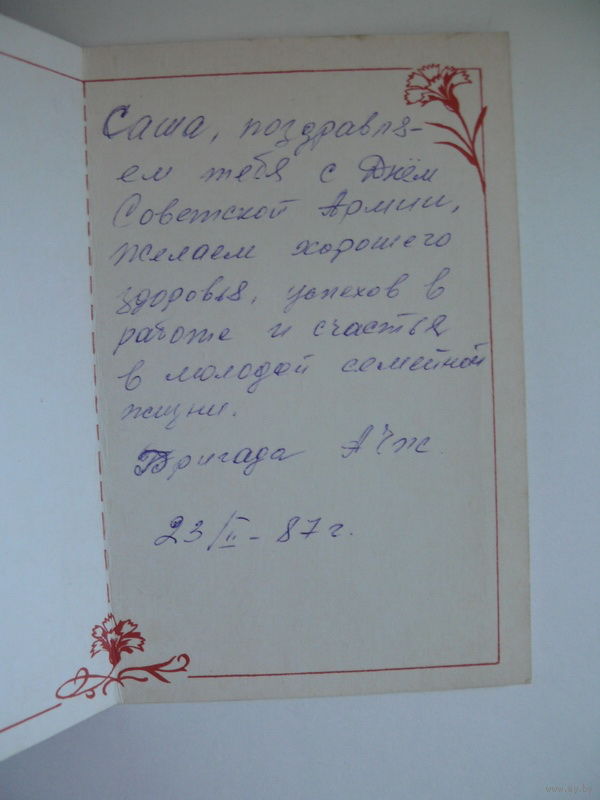 Саша, поздравля-
ем тебя с Днём
Советской Армии,
Желаем хорошего
здоровья, успехов в
работе и счастья
в молодой семейной
жизни.
Бригада АЧж
23/II - 87 г.